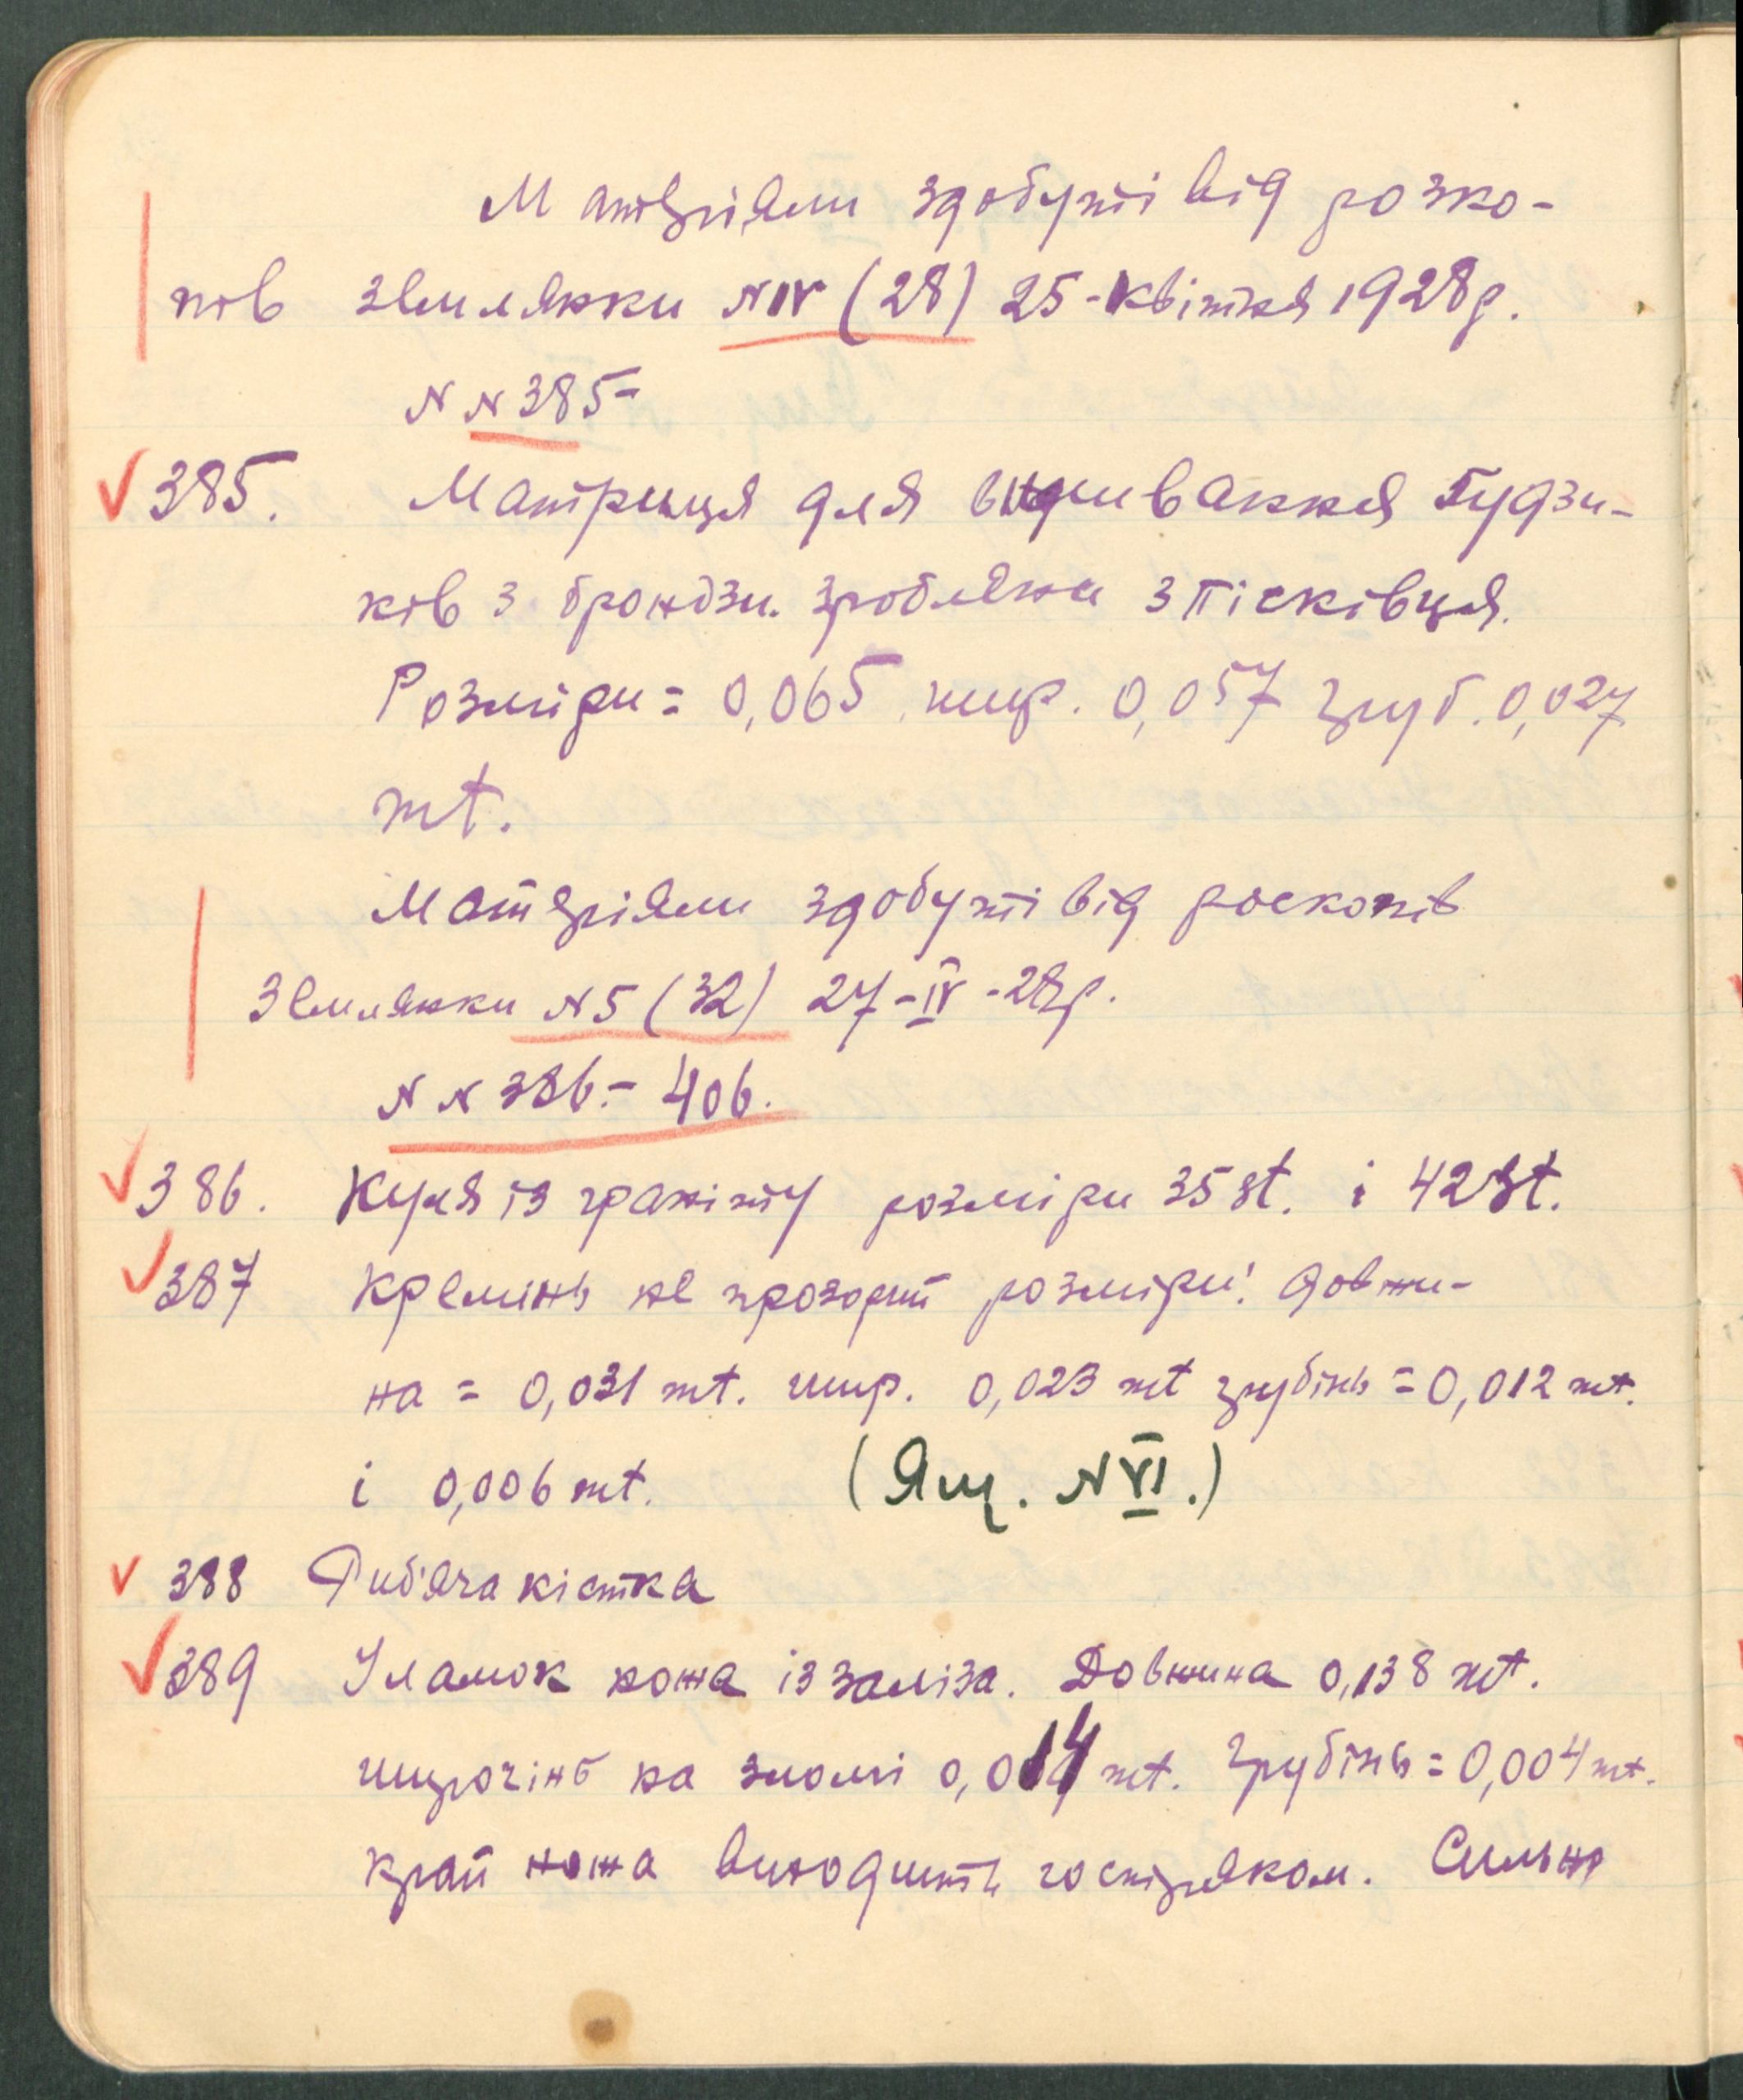 Матеріяли здобуті від розко-
пів землянки № IV (28) 25-квітня 1928 р.
N N 385-
385. Матриця для виливання ґудзи-
ків з бронзи. зроблена з пісківця.
Розміри = 0,065 шир. 0,057 груб. 0,027
mt.
Матеріяли здобуті від роскопів
Землянки N 5 (32) 27-IV-28 р.
N N 386.- 406.
386. Куля із граніту розміри 35 st. і 42 st.
387 Кремінь не прозорий розміри: довжи-
на = 0,031 mt. шир. 0,023 mt грубінь = 0,012 mt.
і 0,006 mt. (Ящ. N VI.)
388 Риб'яча кістка
389 Уламок ножа із заліза. Довжина 0,138 mt.
широчінь на зломі 0,014 mt. Грубінь = 0,004 mt.
край ножа виходить гостряком. Сильно